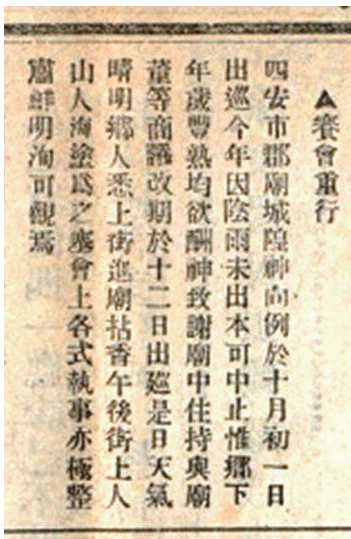 ▲賽會重行
四安市郡廟城隍神向例於十月初一日
出巡今年因陰雨未出本可中止惟鄉下
年歲豐熟均欲酬神致謝廟中住持與廟
董等商議改期於十二日出廵是日天氣
晴明鄉人悉上街進廟拈香午後街上人
山人海塗爲之塞會上各式執事亦極整
肅鮮明洵可觀焉